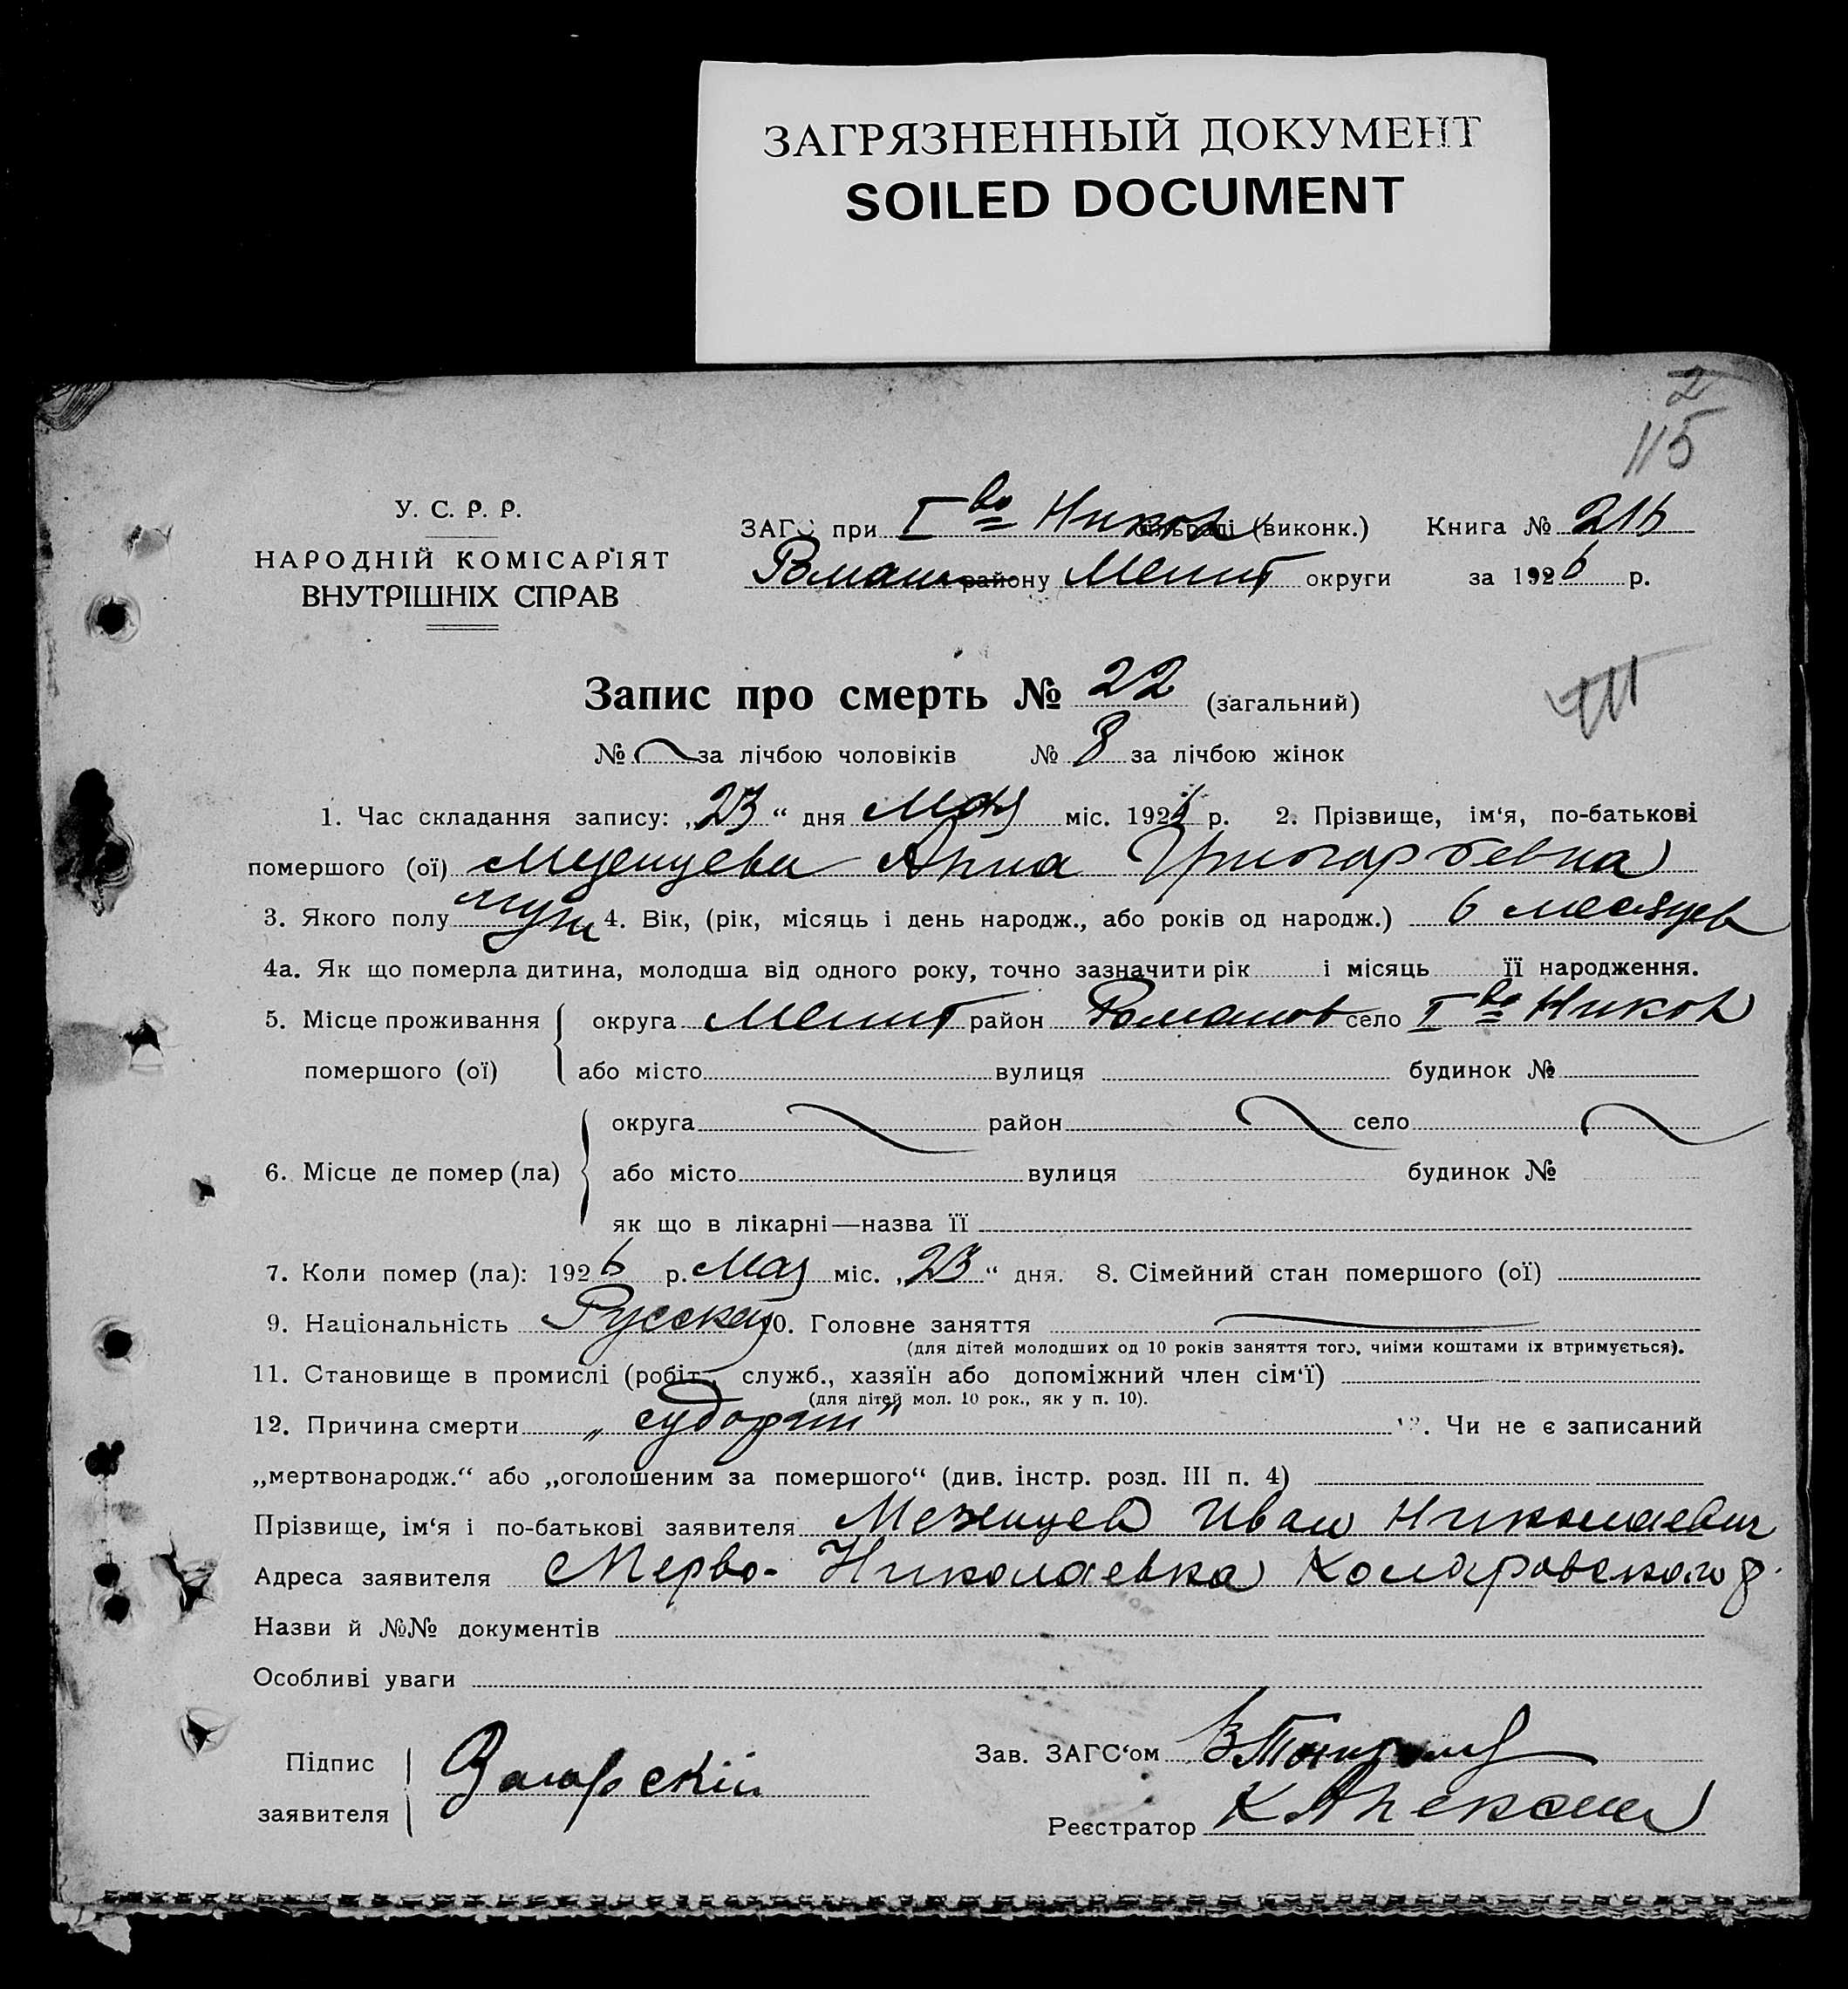 ЗАГРЯЗНЕННЫЙ ДОКУМЕНТ
SOILED DOCUMENT
2
115
У. С. Р. Р.
НАРОДНІЙ КОМІСАР'ІЯТ
ВНУТРІШНІХ СПРАВ
ЗАГС при Iво Никол (виконк.) Книга № 216
Роман району Мелит округи за 1926 р.
Запис про смерть № 22 (загальний)
№ за лічбою чоловіків № 8 за лічбою жінок
1. Час складання запису: „23“ дня Мая міс. 1926 р. 2. Прізвище, ім‘я, по-батькові
помершого (ої) Мезенцева Анна Григорьевна
3. Якого полу муж 4. Вік, (рік, місяць і день народж., або років од народж.) 6 месяцев
4а. Як що померла дитина, молодша від одного року, точно зазначити рік і місяць її народження.
5. Місце проживання округа Мелит район Романов село Iво Никол
помершого (ої) або місто вулиця будинок №
округа район село
6. Місце де помер (ла) або місто вулиця будинок №
як що в лікарні—назва її
7. Коли помер (ла): 1926 р. Мая міс. „23“ дня. 8. Сімейний стан помершого (ої)
9. Національність Русская 10. Головне заняття
(для дітей молодших од 10 років заняття того, чиїми коштами їх втримується).
11. Становище в промислі (робіт., служб., хазяїн або допоміжний член сім‘ї)
(для дітей мол. 10 рок., як у п. 10).
12. Причина смерти 13. Чи не є записаний
„мертвонародж.“ або „оголошеним за помершого“ (див. інстр. розд. III п. 4)
Прізвище, ім‘я і по-батькові заявителя Мезенцев Иван Николаевич
Адреса заявителя Перво-Николаевка
Назви й №№ документів
Особливі уваги
Підпис
заявителя
Зав. ЗАГС‘ом
Реєстратор